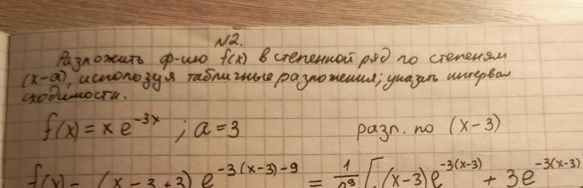 N2.
Разложить ф-ию f(x) в степенной ряд по степеням
(x-a), используя табличные разложения; указать интервал
сходимости.
f(x) = x e^{-3x} ; a = 3 разл. по (x-3)
f(x) = (x-3+3) e^{-3(x-3)-9} = 1/e^9 [(x-3)e^{-3(x-3)} + 3e^{-3(x-3)}